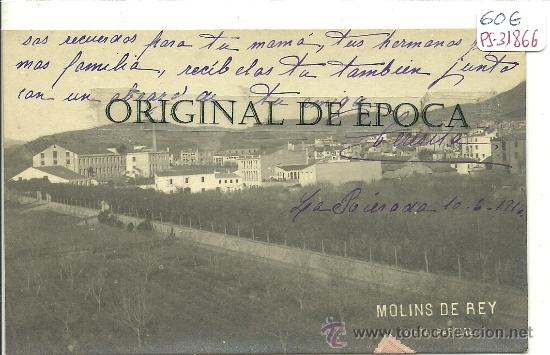 60€
PS-31866
sos recuerdos para tu mamá, tus hermanos y
mas familia, recibelos tu tambien junto
con un abrazo de tu amiga
ORIGINAL DE EPOCA
La Rierada 10-6-191
MOLINS DE REY
todocoleccion